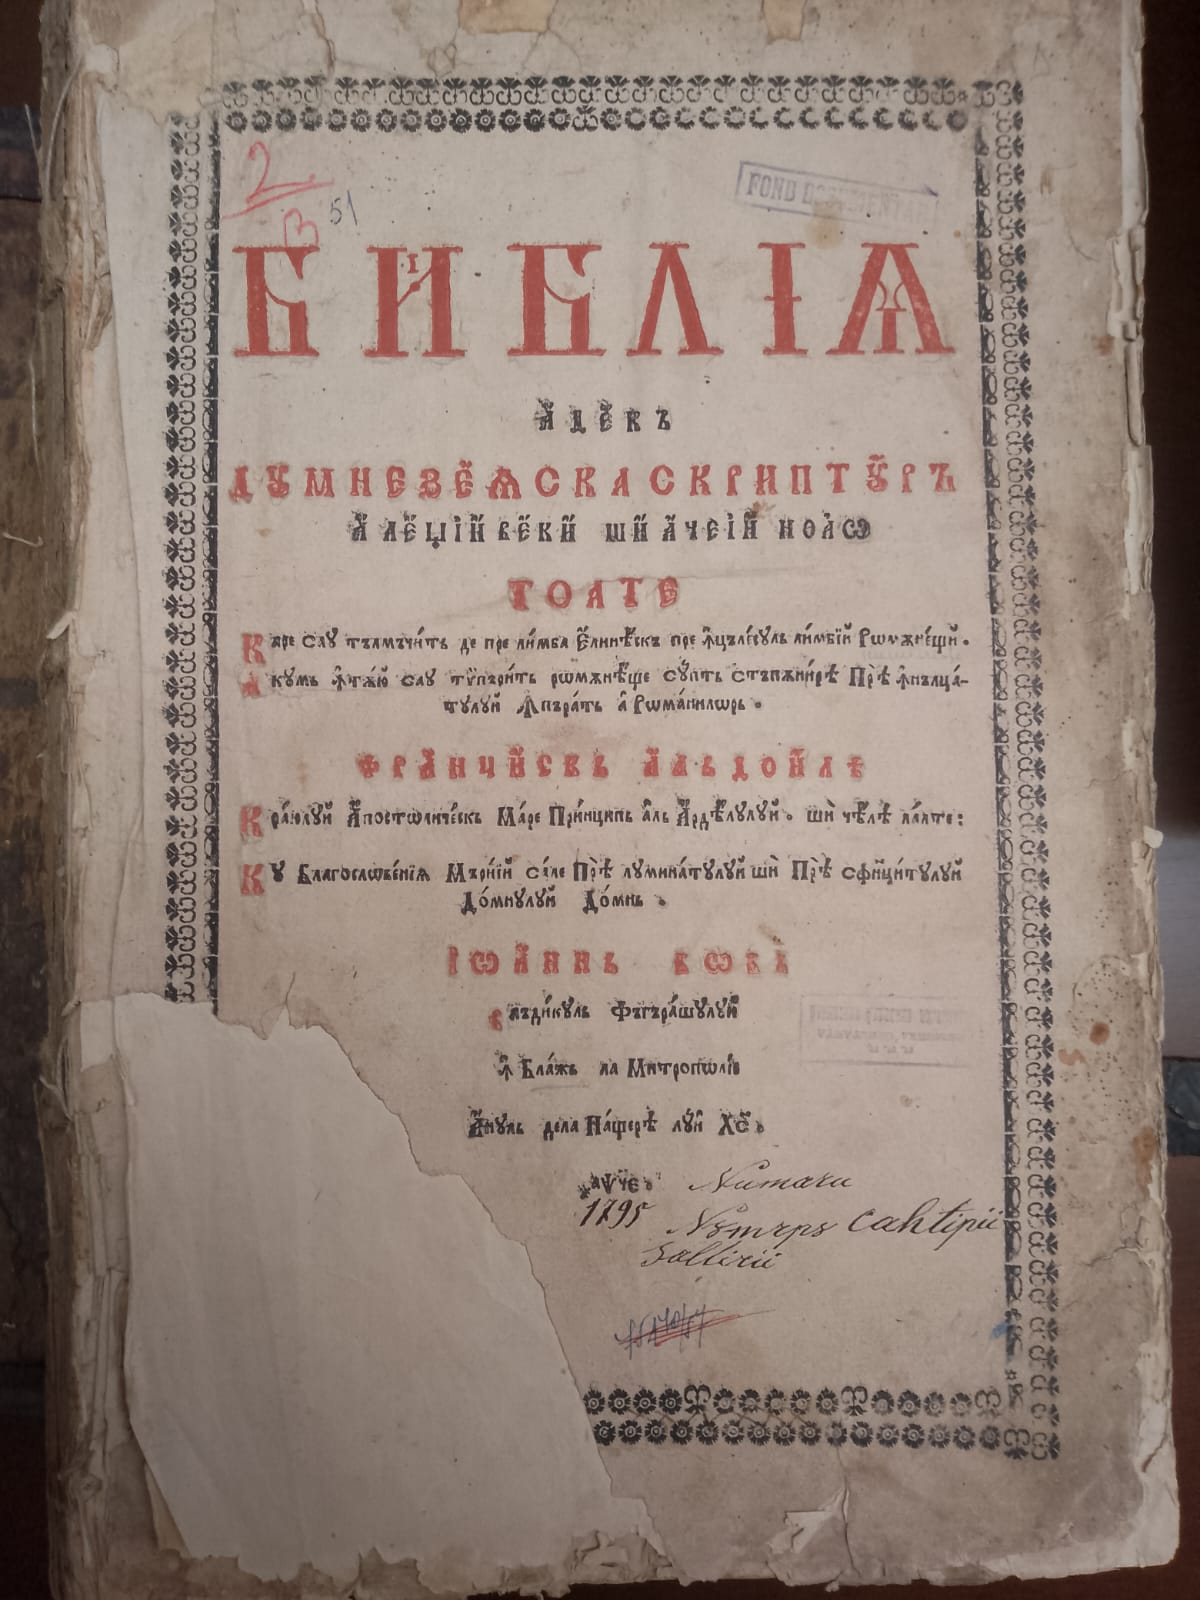 2.
B 51
FOND DOCUMENTAR
БИ́БЛІѦ
А҆ДЕ́КЪ
ДУМНЕЗЕѦ́СКА СКРИПТУ́РЪ
А҆ ЛЕ́ЏІЙ ВЕ́КИ ШИ А҆ ЧЕІ́Й НОА́Ѡ
ТОАТЕ
Каре сау тълмъчи́ть де пре ли́мба Є҆лине́скъ пре ꙟ҆цълѣсуль ли́мбїй Рѡмѫне́щй.
Акумь ꙟ҆тѫ́ю сау тѷпъри́ть рѡмѫне́ще су́пть стъпѫни́рѣ Прѣ ꙟ҆нълца́-
тулуй Ꙟпъра́ть а҆ Рѡма́нилѡрь.
ФРА́НЧИ́СКЪ А҆ЛЬ ДО́ЙЛѢ
Кра́юлуй А҆постѡличе́скь Ма́ре При́нципь а҆ль А҆рдѣ́лулуй. шѝ чѣ́лѣ ла́лте:
Ку Благословѣ́нїѧ Мърі́ей са́ле Прѣ лумина́тулуй шѝ Прѣ сфинци́тулуй
До́мнулуй До́мнь.
ІѠА́ННЬ БѠБЬ
Влъди́куль Фъгъра́шулуй
ꙟ҆ Бла́жь ла Митрополі́е
А҆́нуль дела На́щерѣ луй Хс҃.
҂аѱче.
1795
Numaru
Nȣmѣрȣ Cahtipii
Saltirii